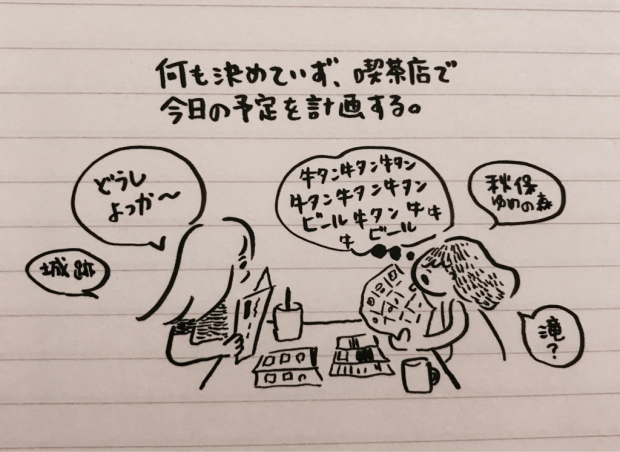 何も決めていず、喫茶店で
今日の予定を計画する。
どうし
よっか〜
城跡
牛タン牛タン牛タン
牛タン牛タン牛タン
ビール牛タン牛牛
牛ビール
秋保
ゆめの森
滝
?